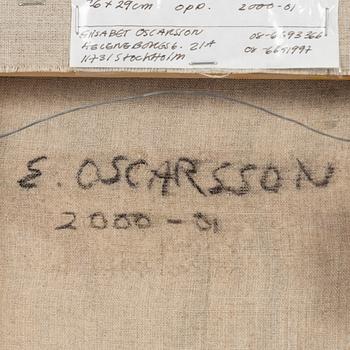 26 x 29 cm opp. 2000-01
ELISABET OSCARSSON 08-6693366
HELENEBORGSG. 21A 08-6691997
11731 STOCKHOLM
E. OSCARSSON
2000-01